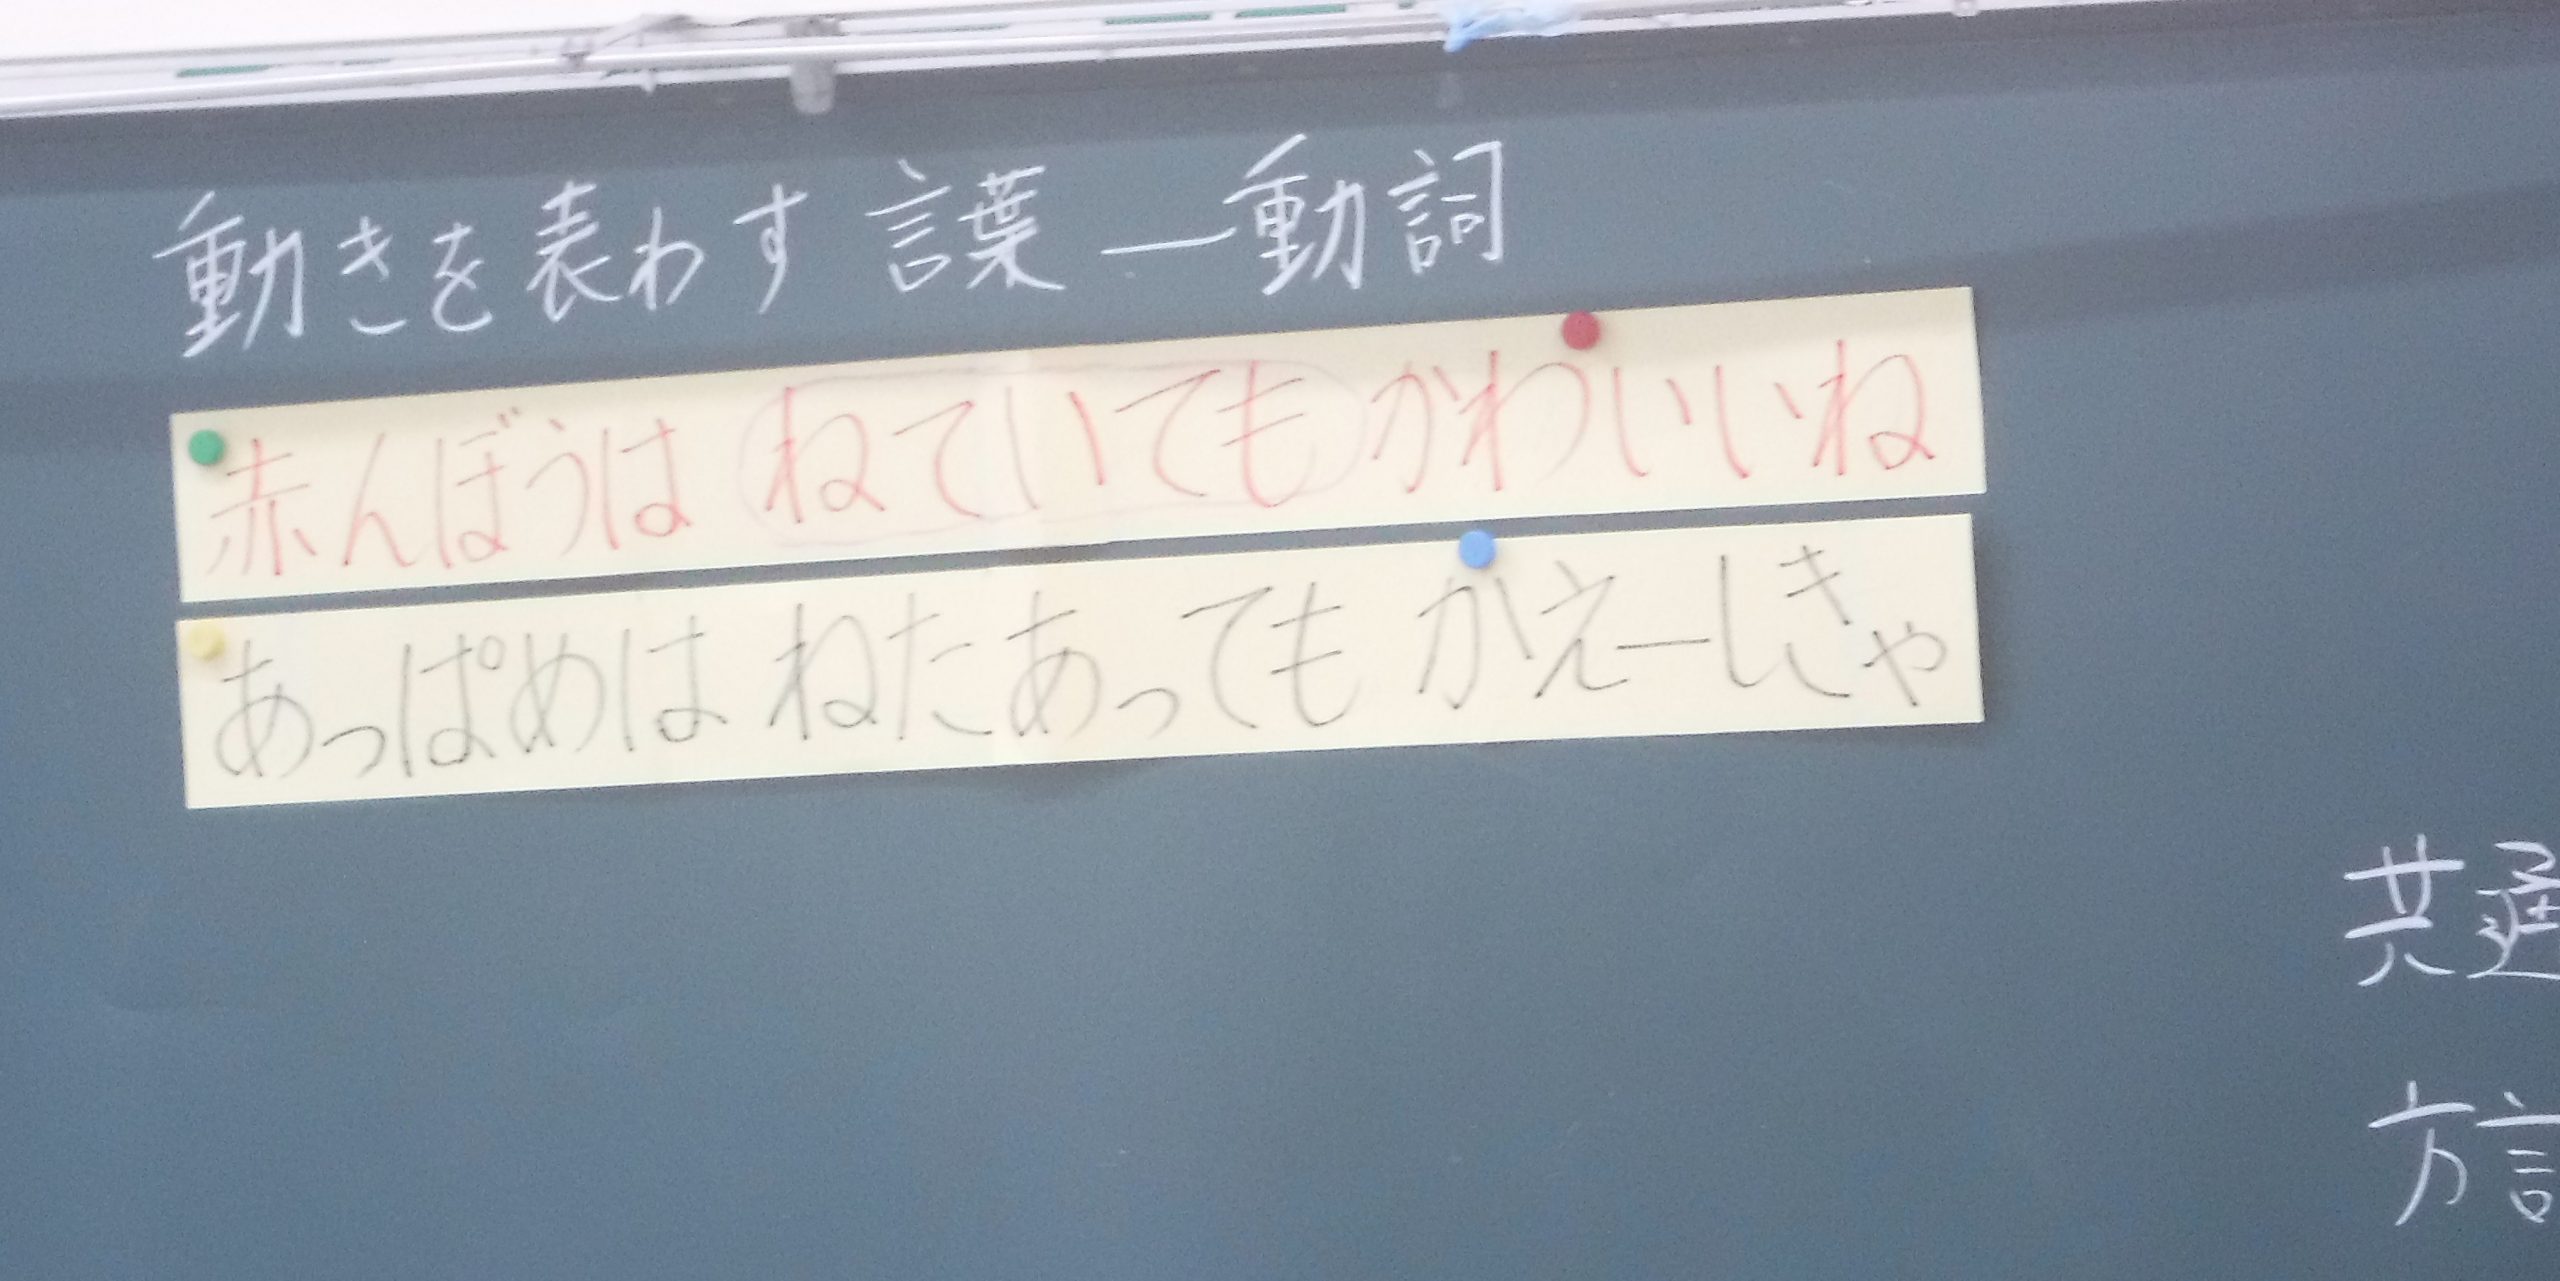 動きを表わす言葉―動詞
赤んぼうは ねていても かわいいね
あっぱめは ねたあっても かえーしきゃ
共通
方言